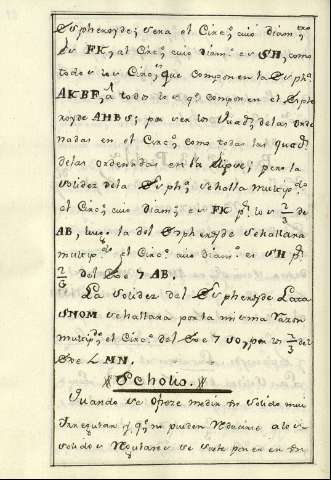 Spheroyde; sera el Circ.º cuio diam.tro
es FK, al Circ.º cuio diam.º es SH, como
todos los Circ.os que componen la Sph.ª
AKBF, a todos los q.e componen el Sphe
royde AHBS; por ser los quad.os de las orde
nadas en el Circ.º como todas las quad.s
de las ordenadas en la Elipse; pero la
solidez de la Sph.ª se halla multip.do
el Circ.º cuio diam.º es FK p.r los 2/3 de
AB, luego la del Spheroyde se hallara
multip.do el Circ.º cuio diam.º es SH p.r
2/3 del Exe AB.
La solidez del Spheroyde Lata
SNOM se hallara por la misma razon
multip.do el Circ.º del Exe SO, por los 2/3 del
Exe MN.
Scholio.
Quando se ofreze medir un solido mui
Irregular q.e no pueden reducirse a los
solidos regulares se suele poner en un